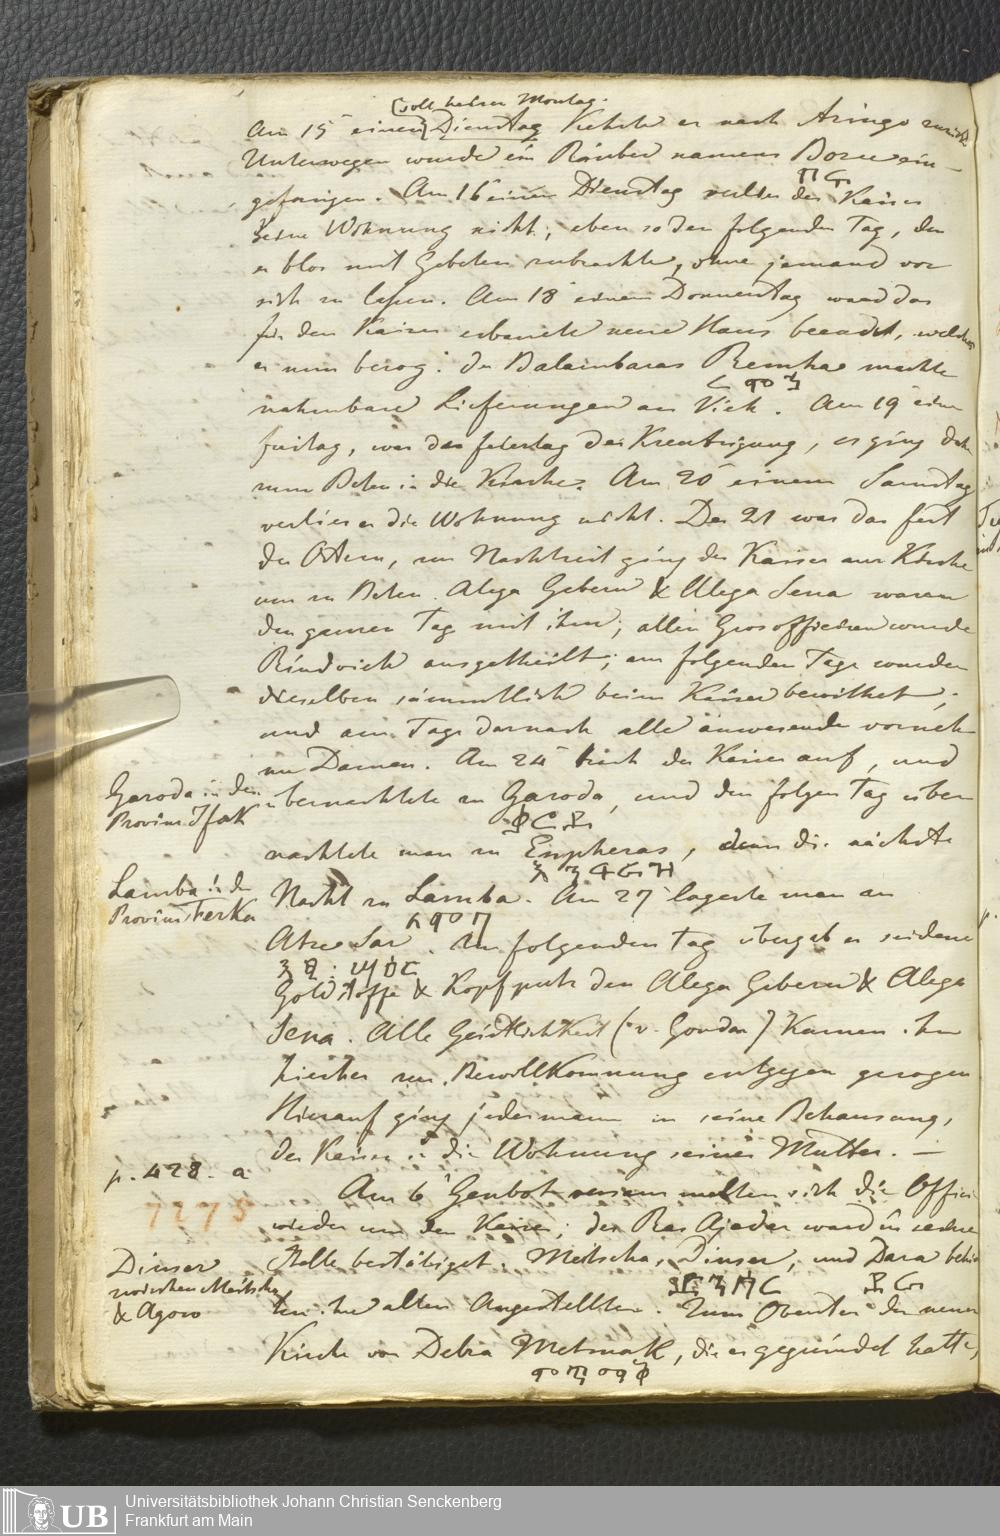 [soll heisen Montag.
Am 15ᵗ einen Dienstag Kehrte er nach Aringo zurück
Unterwegen wurde ein Räuber namens Borre ein-
gefangen. Am 16ᵗ einen Dienstag verlies der Kaiser
seine Wohnung nicht; eben so den folgenden Tag, den
er blos mit Gebeten zubrachte, ohne jemand vor
sich zu lassen. Am 18ᵗ einem Donnerstag ward das
für den Kaiser erbaute neue Haus beendet, welches
er nun bezog: der Balambaras Remha machte
ረምኃ
nahmbare Lieferungen an Vieh. Am 19ᵗ einen
freitag, war das feiertag der Kreutzigung, er ging daher
zum Beten in die Kirche. Am 20ᵗ einem Samstag
verlies er die Wohnung nicht. Der 21 war das fest
der Ostern, zur Nachtzeit ging der Kaiser zur Kirche
um zu Beten. Alega Geberu & Alega Sena waren
den ganzen Tag mit ihm; allen Grosofficieren wurde
Rindvieh ausgetheilt; am folgenden Tage wurden
dieselben sämmtlich beim Kaiser bewirthet,
und am Tage darnach alle anwesende vorneh-
me Damen. Am 24ᵗ brach der Kaiser auf, und
Garoda in der
Provinz Ifak
übernachtete zu Garoda, und den folgen Tag über
nachtete man zu Enpheras, dann die nächste
እንፍራዝ
Lamba in der
Provinz Ferka
Nacht zu Lamba. Am 27ᵗ lagerte man an
ላምባ
Atze Sar. Am folgenden Tag übergab er seidene
Goldstoffe & Kopfputz den Alega Geberu & Alega
Sena. Alle Geistlichkeit (v. Gondar) Kamen ihm
hierher zur Bewillkommnung entgegen gezogen
Hierauf ging jedermann in seine Behausung,
der Kaiser in die Wohnung seiner Mutter. —
p. 428. a
7275
Am 6ᵗ Genbot versammelten sich die Offici
wieder um den Kaiser; der Ras Ajadar ward in seiner
Dinser
zwischen Maitscha
& Agow
Stelle bestätiget. Meitscha, Dinser, und Dara behiel
ten ihre alten Angestellten. Zum Obersten der neuen
Kirche von Debra Metmak, die er gegründet hatte,
መጥመቅ
Universitätsbibliothek Johann Christian Senckenberg
Frankfurt am Main
UB